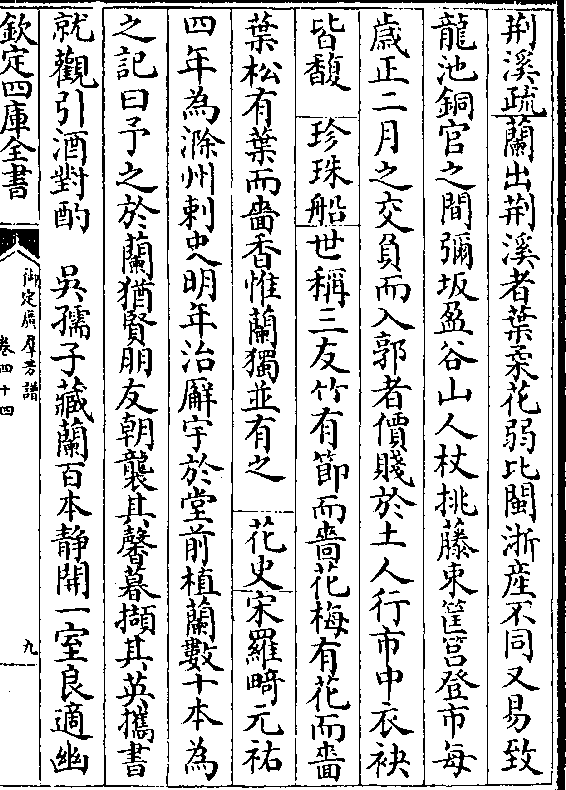 荆溪疏蘭出荆溪者葉柔花弱比閩浙産不同又易致
龍池銅官之間彌坂盈谷山人杖挑藤束筐筥登市每
歲正二月之交負而入郭者價賤於土人行市中衣袂
皆馥　珍珠船世稱三友竹有節而嗇花梅有花而嗇
葉松有葉而嗇香惟蘭獨並有之　花史宋羅畸元祐
四年為滁州刺史明年治廨宇於堂前植蘭數十本為
之記曰予之於蘭猶賢朋友朝襲其馨暮擷其英攜書
就觀引酒對酌　吳孺子藏蘭百本静開一室良適幽
欽定四庫全書
御定廣羣芳譜
卷四十四
九